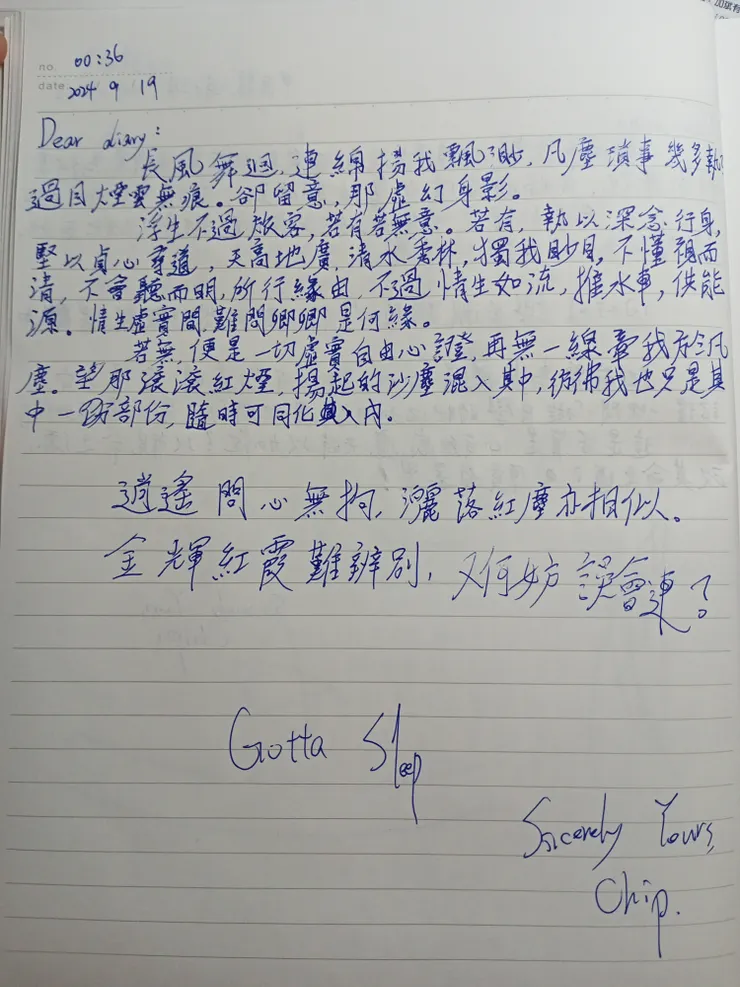 加班有
no. 00:36
date 2024 9 19
Dear diary:
長風舞迴,連綿揚我飄渺,凡塵瑣事幾多執
過目煙雲無痕。卻留意,那虛幻身影。
浮生不過旅客,若有若無意。若有,執以深念行身,
堅以貞心尋道,天高地廣,清水秀林,獨我眇目,不懂視而
清,不會聽而明,所行緣由,不過情生如流,推水車,供能
源。情生虛實間,難問卿卿是何緣。
若無,便是一切虛實自由心證,再無一線牽我於凡
塵。望那滾滾紅煙,揚起的沙塵混入其中,彷彿我也只是其
中一部份,隨時可同化其入內。
逍遙問心無拘,灑落紅塵亦相似。
金輝紅霞難辨別,又何妨誤會連?
Gotta Sleep
Sincerely Yours,
Chip.